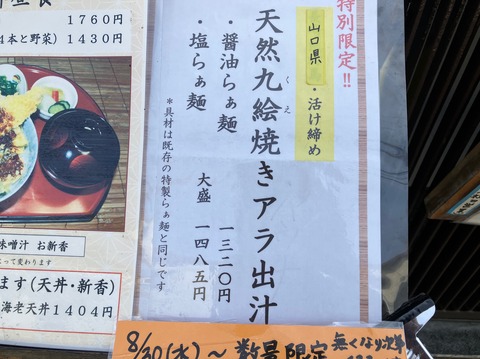 特別限定!!
山口県・活け締め
天然九絵焼きアラ出汁
くえ
・醤油らぁ麺 一三二〇円
・塩らぁ麺 大盛 一四八五円
*具材は既存の特製らぁ麺と同じです
1760円
4本と野菜) 1430円
味噌汁 お新香
って変わります
ます(天丼・新香)
海老天丼1404円
8/30(木)～数量限定
無くなり次第